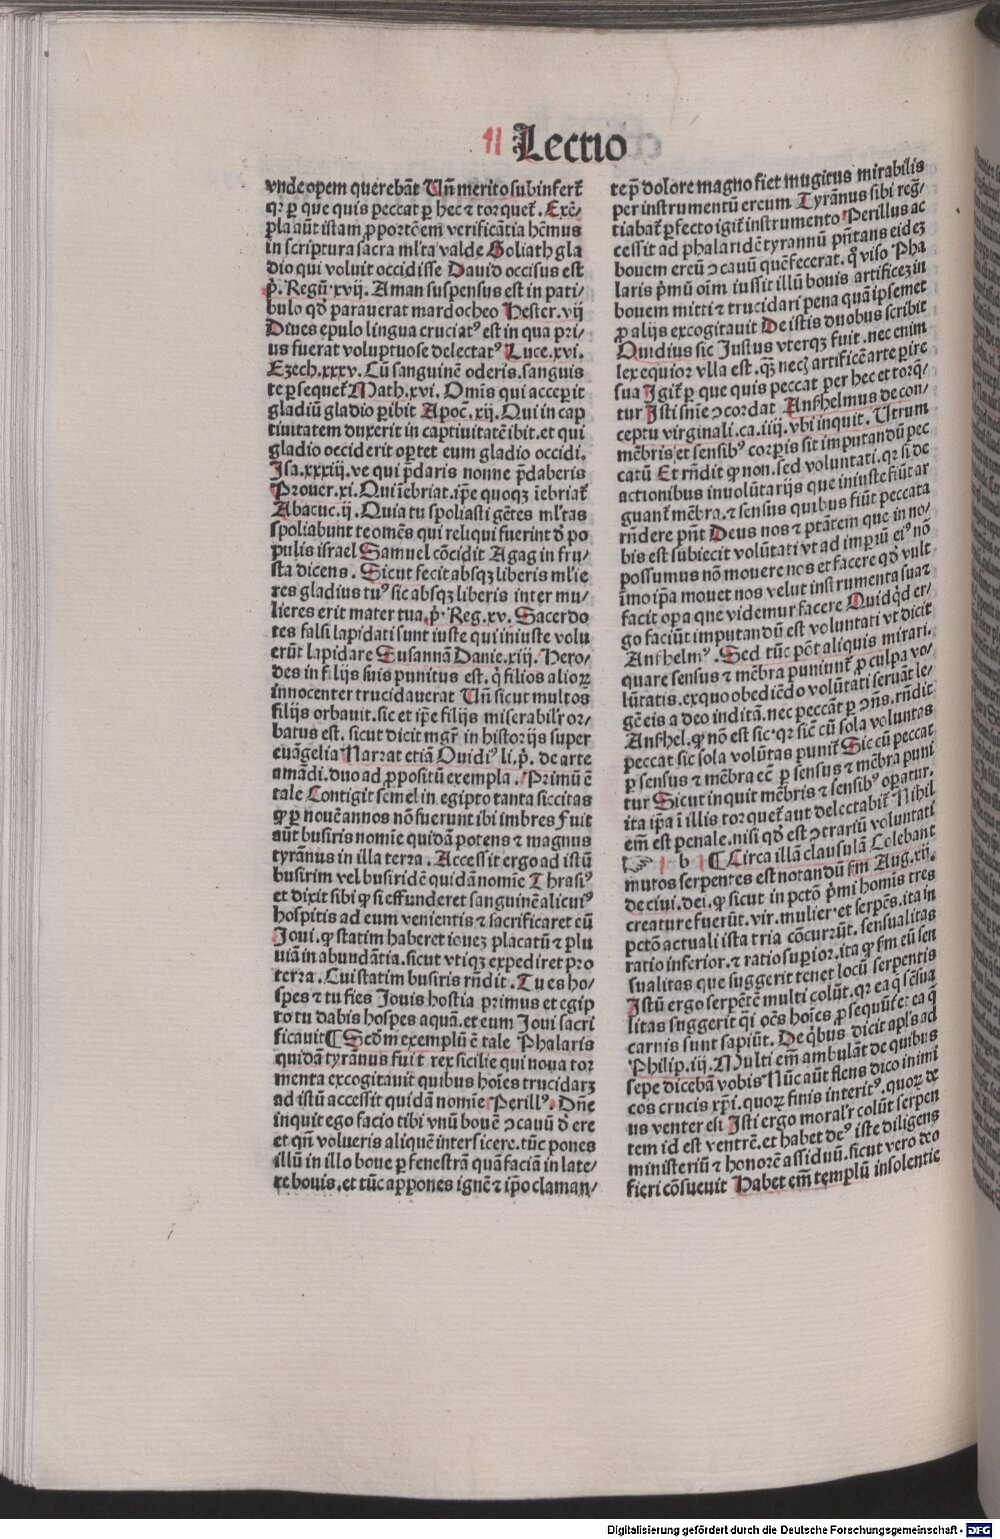 Lectio
vnde opem querebãt Uñ merito subinfert᷑
qꝛ ꝑ que quis peccat ꝑ hec ⁊ torquet᷑. Exẽ⸗
pla aũt istam ꝓportẽem verificãtia hẽmus
in scriptura sacra ml̓ta valde Goliath gla
dio qui voluit occidisse Dauid occisus est
p̓. Regũ xvij. Aman suspensus est in pati⸗
bulo qð parauerat mardocheo Hester. vij
Diues epulo lingua cruciatꝰ est in qua pri⸗
us fuerat voluptuose delectatꝰ Luce. xvi.
Ezech. xxxv. Cũ sanguinẽ oderis. sanguis
te ꝑsequet᷑ Math. xvi. Om̃is qui acceperit
gladiũ gladio ꝑibit Apoc̃. xij. Qui in cap
tiuitatem duxerit in captiuitatẽ ibit. et qui
gladio occiderit oꝑtet eum gladio occidi.
Isa. xxxiij. ve qui p̃daris nonne p̃daberis
Prouer. xi. Qui ĩebriat. ip̃e quoqꝫ ĩebriat᷑
Abacuc. ij. Quia tu spoliasti gẽtes ml̓tas
spoliabunt te omẽs qui reliqui fuerint ð po
pulis israel Samuel cõcidit Agag in fru⸗
sta dicens. Sicut fecit absqꝫ liberis ml̓ie
res gladius tuꝰ sic absqꝫ liberis inter mu⸗
lieres erit mater tua. p̓. Reg. xv. Sacerdo
tes falsi lapidati sunt iuste qui iniuste volu
erũt lapidare Susannã Danie. xiij. Hero⸗
des in filijs suis punitus est. q̓ filios alioꝝ
innocenter trucidauerat Uñ sicut multos
filijs orbauit. sic et ip̃e filijs miserabilr̓ or⸗
batus est. sicut dicit mgr̃ in historijs super
euãgelia Narrat etiã Ouidiꝰ li. p̓. de arte
amãdi. duo ad ꝓpositũ exempla. Primũ ẽ
tale Contigit semel in egipto tanta siccitas
ꝙ ꝑ nouẽ annos nõ fuerunt ibi imbres Fuit
aũt busiris nomĩe quidã potens ⁊ magnus
tyrãnus in illa terra. Accessit ergo ad istũ
busirim vel busiridẽ quidã nomĩe Thrasiꝰ
et dixit sibi ꝙ si effunderet sanguinẽ alicuiꝰ
hospitis ad eum venientis ⁊ sacrificaret eũ
Joui. ꝙ statim haberet ioueꝫ placatũ ⁊ plu
uiã in abundãtia. sicut vtiqꝫ expediret pro
terra. Cui statim busiris rñdit. Tu es ho⸗
spes ⁊ tu fies Jouis hostia primus et egip
to tu dabis hospes aquã. et eum Joui sacri
ficauit ¶ Scðm exemplũ ẽ tale Phalaris
quidã tyrãnus fuit rex sicilie qui noua tor
menta excogitauit quibus hoĩes trucidarꝫ
ad istũ accessit quidã nomĩe Perillꝰ. Dñe
inquit ego facio tibi vnũ bouẽ ↄcauũ ð ere
et qñ volueris aliquẽ intersicere. tũc pones
illũ in illo boue ꝑ fenestrã quã faciã in late⸗
re bouis. et tũc appones ignẽ ⁊ ip̃o claman⸗
te p̃ dolore magno fiet mugitus mirabilis
per instrumentũ ercum Tyrãnus sibi reg̃⸗
tiabat᷑ ꝑfecto igit᷑ instrumento Perillus ac
cessit ad phalaridẽ tyrannũ pñtans eideꝫ
bouem ereũ ↄcauũ quẽ fecerat. q̓ viso Pha
laris p̓mũ oĩm iussit illũ bouis artificeꝫ in
bouem mitti ⁊ trucidari pena quã ipsemet
ꝓ alijs excogitauit De istis duobus scribit
Ouidius sic Justus vterqꝫ fuit. nec enim
lex equior vlla est. qꝫ̃ necꝫ artificẽ arte ꝑire
sua Igit᷑ ꝑ que quis peccat per hec et torq̃⸗
tur Isti sñie ↄcordat Anshelmus de con⸗
ceptu virginali. ca. iiij. vbi inquit. Utrum
mẽbris et sensibꝰ corꝑis sit imputandũ pec
catũ Et rñdit ꝙ non. sed voluntati. qꝛ si de
actionibus inuolũtarijs que iniuste fiũt ar
guant᷑ mẽbra. ⁊ sensus quibus fiũt peccata
rñdere pñt Deus nos ⁊ ptãtem que in no⸗
bis est subiecit volũtati vt ad imperiũ eiꝰ nõ
possumus nõ mouere nos et facere qð vult
ĩmo ip̃a mouet nos velut instrumenta sua ⁊
facit opa que videmur facere Quidq̓d er⸗
go faciũt imputandũ est voluntati vt dicit
Anshelmꝰ. Sed tũc põt aliquis mirari.
quare sensus ⁊ mẽbra puniunt᷑ ꝓ culpa vo⸗
lũtatis. ex quo obediẽdo volũtati seruãt le⸗
gẽ eis a deo inditã. nec peccãt ꝑ ↄñs. rñdit
Anshel. ꝙ nõ est sic. qꝛ sic̃ cũ sola voluntas
peccat sic sola volũtas punit᷑ Sic cũ peccat
ꝑ sensus ⁊ mẽbra ec̃ ꝑ sensus ⁊ mẽbra puni
tur Sicut inquit mẽbris ⁊ sensibꝰ oꝑatur.
ita ip̃a ĩ illis torquet᷑ aut delectabit᷑ Nihil
em̃ est penale. nisi qð est ↄtrariũ voluntati
☞ b ¶ Circa illã clausulã Colebant
mutos serpentes est notandũ ẜm Aug. xij.
de ciui. dei. ꝙ sicut in pctõ p̓mi homĩs tres
creature fuerũt. vir. mulier. et serpẽs. ita in
pctõ actuali ista tria cõcurrũt. sensualitas
ratio inferior. ⁊ ratio suꝑior. ita ꝙ ẜm eũ sen
sualitas que suggerit tenet locũ serpentis
Istũ ergo serpẽtẽ multi colũt. qꝛ ea q̃ sẽsua
litas suggerit q̃i oẽs hoĩes ꝓsequũt᷑ et ea q̃
carnis sunt sapiũt. De q̓bus dicit apl̓s ad
Philip. iij. Multi em̃ ambulãt de quibus
sepe dicebã vobis Nũc aũt flens dico inimi
cos crucis xp̃i. quoꝝ finis interitꝰ. quoꝝ de
us venter est Isti ergo moralr̓ colũt serpen
tem id est ventrẽ. et habet deꝰ iste diligens
ministeriũ ⁊ honorẽ assiduũ. sicut vero deo
fieri cõsueuit Habet em̃ templũ insolentie
Digitalisierung gefördert durch die Deutsche Forschungsgemeinschaft - DFG